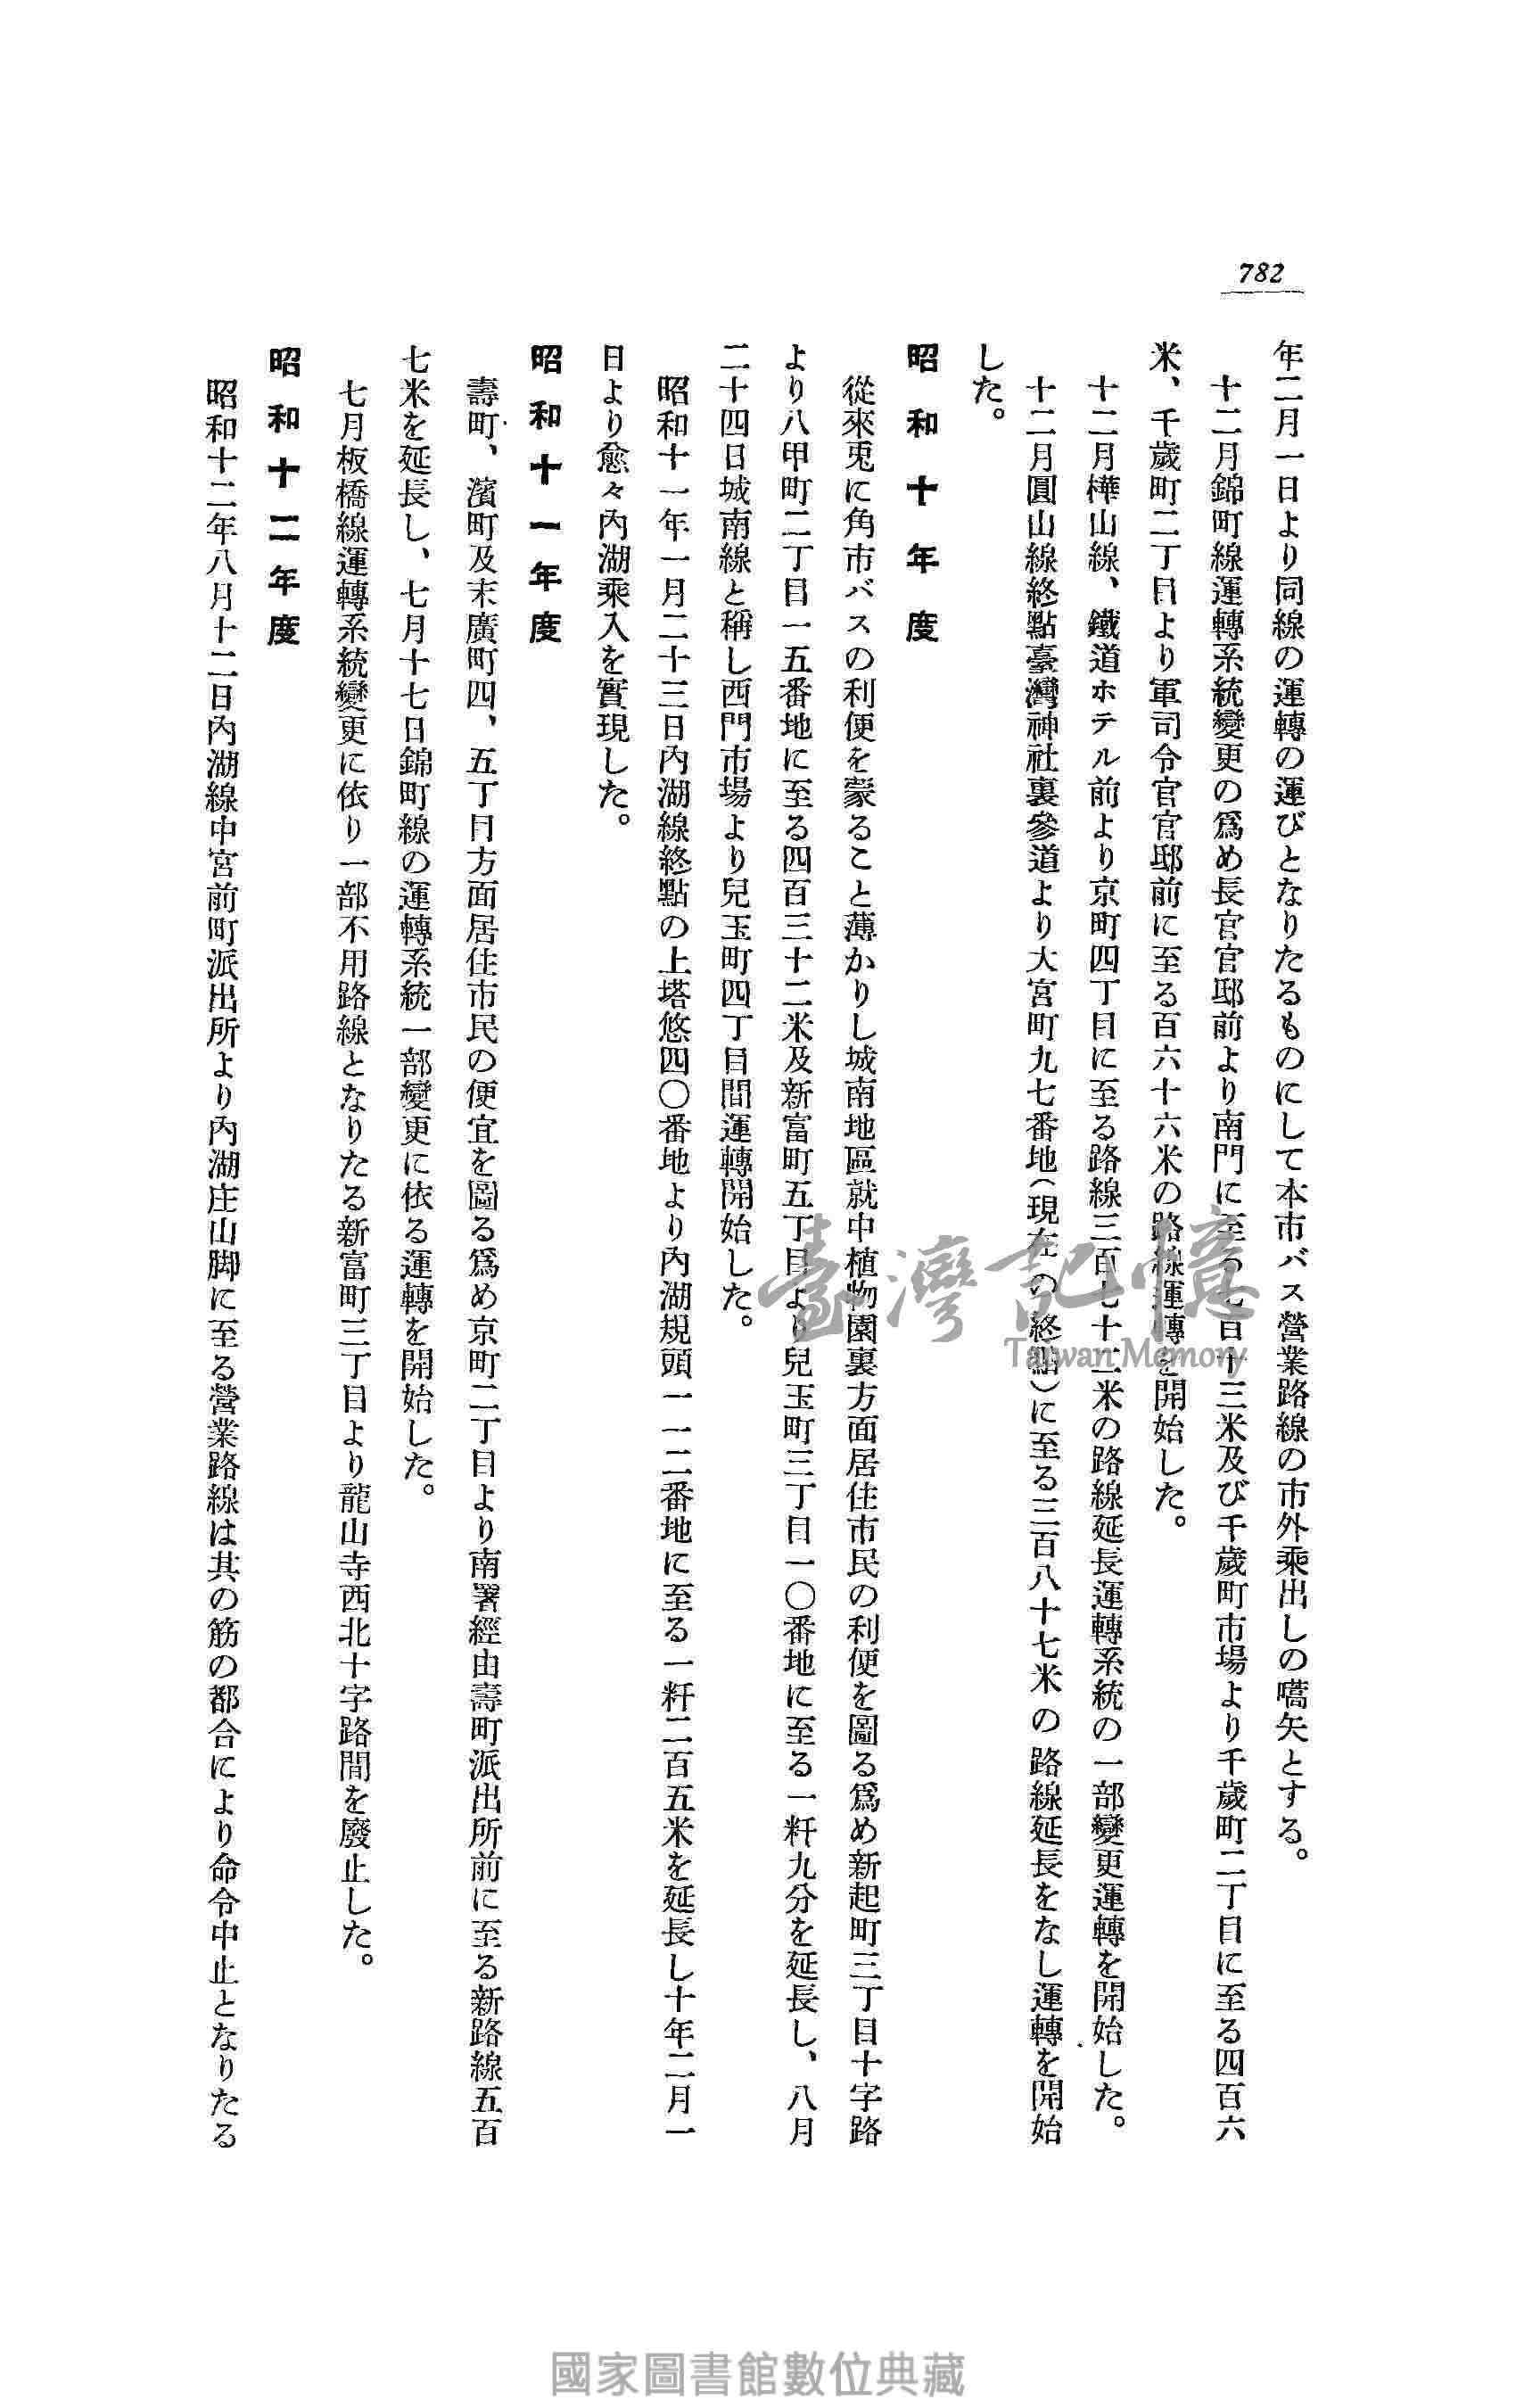 782
年二月一日より同線の運轉の運びとなりたるものにして本市バス營業路線の市外乘出しの嚆矢とする。
十二月錦町線運轉系統變更の爲め長官官邸前より南門に至る七百十三米及び千歲町市場より千歲町二丁目に至る四百六
米、千歲町二丁目より軍司令官官邸前に至る百六十六米の路線運轉を開始した。
十二月樺山線、鐵道ホテル前より京町四丁目に至る路線三百七十二米の路線延長運轉系統の一部變更運轉を開始した。
十二月圓山線終點臺灣神社裏參道より大宮町九七番地(現在の終點)に至る三百八十七米の路線延長をなし運轉を開始
した。
昭和十年度
從來兎に角市バスの利便を蒙ること薄かりし城南地區就中植物園裏方面居住市民の利便を圖る爲め新起町三丁目十字路
より八甲町二丁目一五番地に至る四百三十二米及新富町五丁目より兒玉町三丁目一〇番地に至る一粁九分を延長し、八月
二十四日城南線と稱し西門市場より兒玉町四丁目間運轉開始した。
昭和十一年一月二十三日內湖線終點の上塔悠四〇番地より內湖規頭一一二番地に至る一粁二百五米を延長し十年二月一
日より愈々內湖乘入を實現した。
昭和十一年度
壽町、濱町及末廣町四、五丁目方面居住市民の便宜を圖る爲め京町二丁目より南署經由壽町派出所前に至る新路線五百
七米を延長し、七月十七日錦町線の運轉系統一部變更に依る運轉を開始した。
七月板橋線運轉系統變更に依り一部不用路線となりたる新富町三丁目より龍山寺西北十字路間を廢止した。
昭和十二年度
昭和十二年八月十二日內湖線中宮前町派出所より內湖庄山脚に至る營業路線は其の筋の都合により命令中止となりたる
臺灣記憶
Taiwan Memory
國家圖書館數位典藏